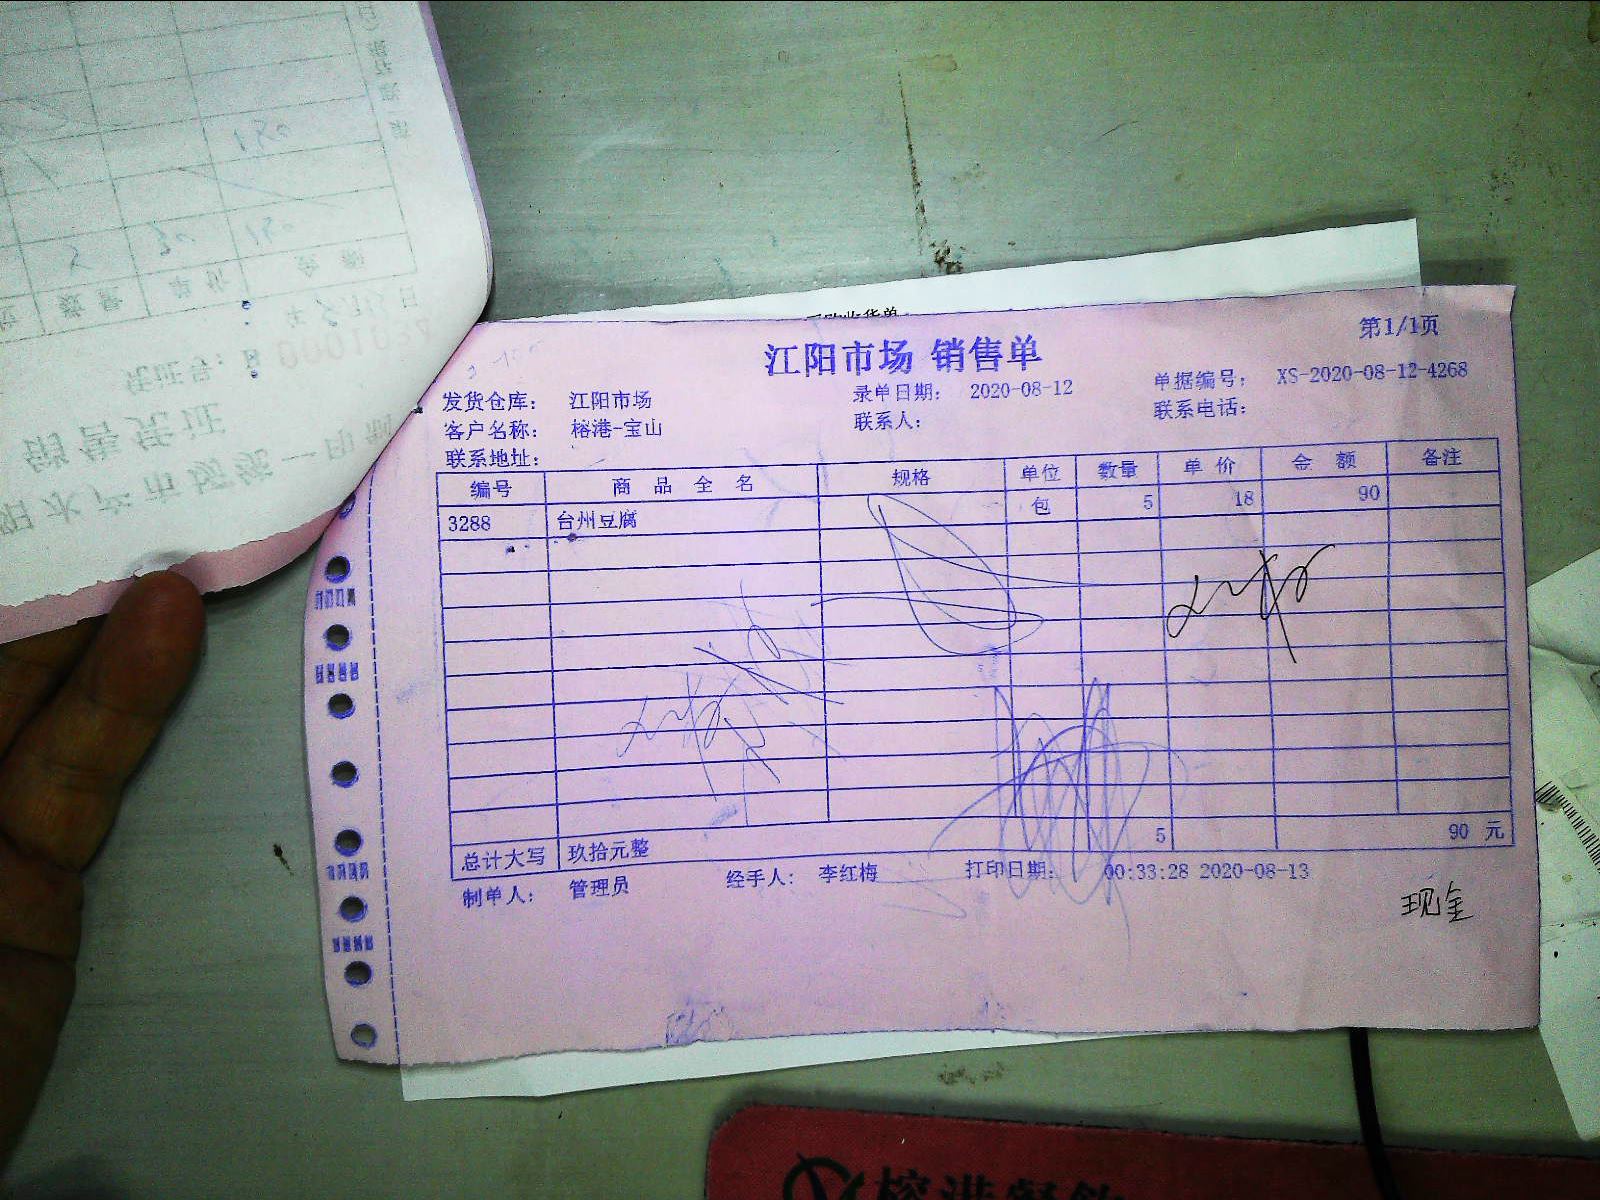 江阳市场 销售单
第1/1页
发货仓库： 江阳市场 录单日期： 2020-08-12 单据编号： XS-2020-08-12-4268
客户名称： 榕港-宝山 联系人： 联系电话：
联系地址：
编号 商品全名 规格 单位 数量 单价 金额 备注
3288 台州豆腐 包 5 18 90
总计大写 玖拾元整 5 90 元
制单人： 管理员 经手人： 李红梅 打印日期： 00:33:28 2020-08-13
现金
销售凭证
凭证号：
数量 单价 金额
榕港餐饮